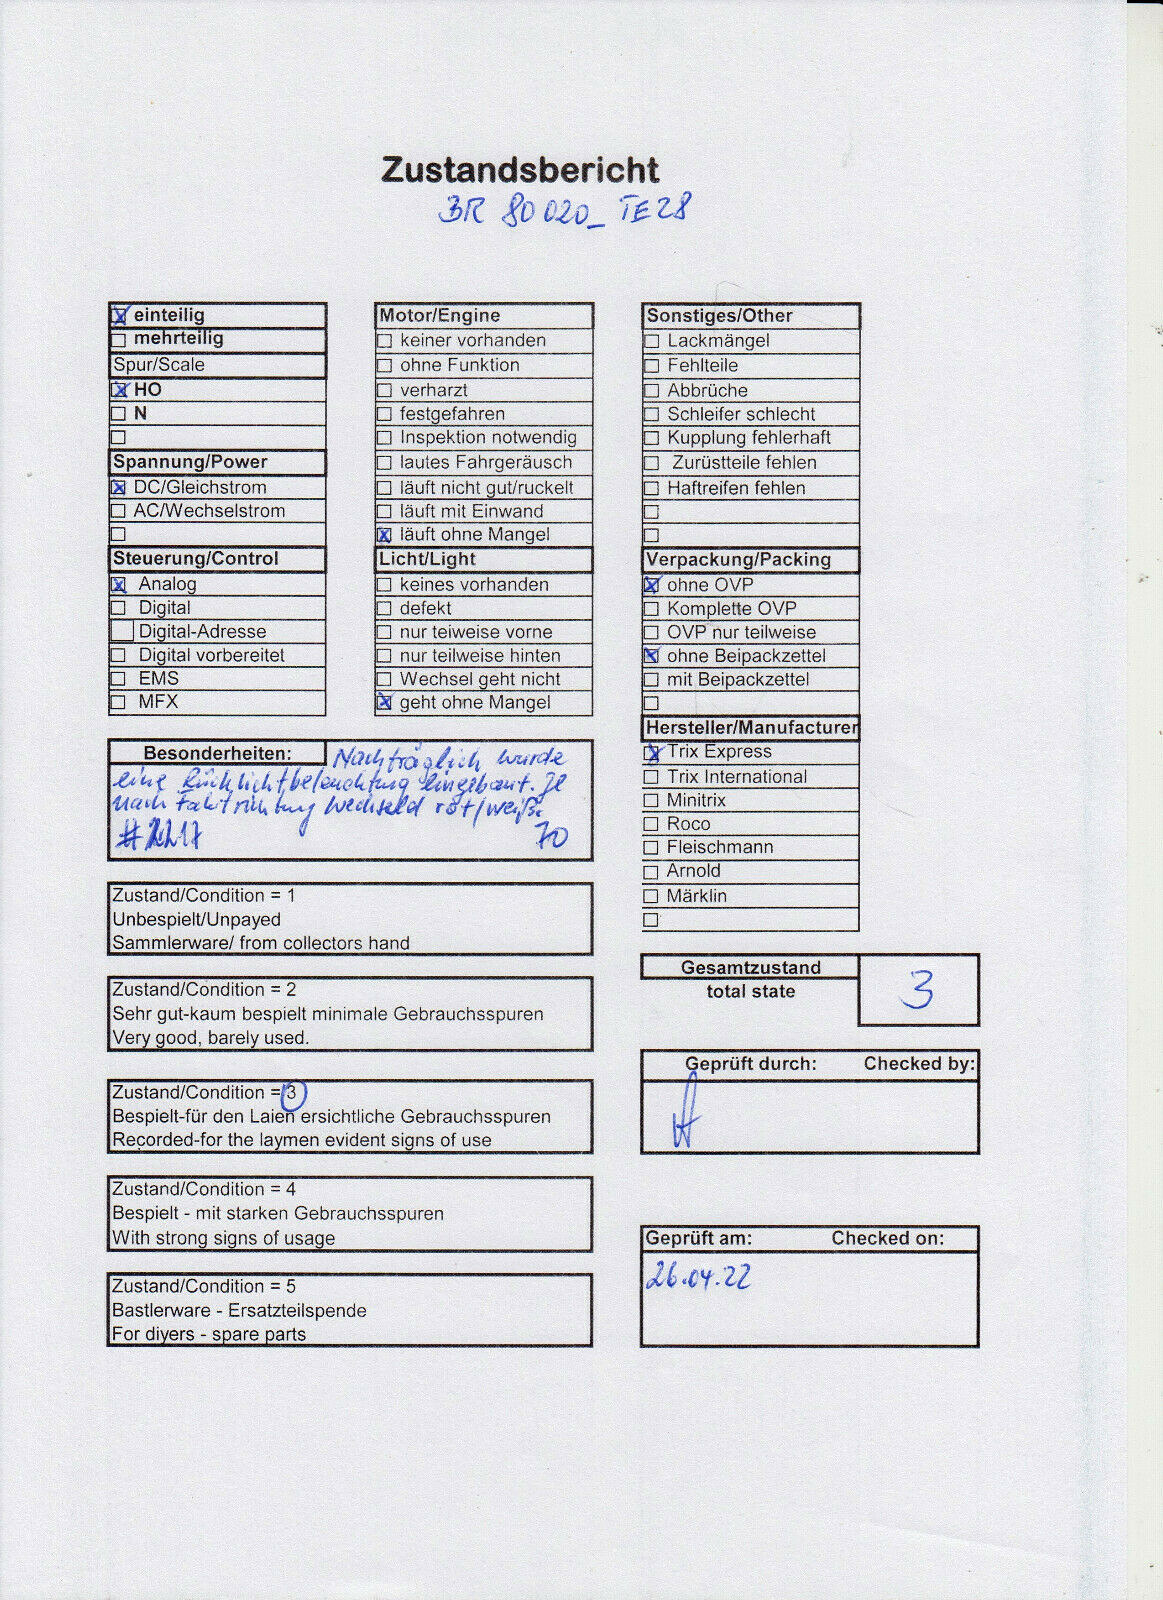 Zustandsbericht
BR 80 020_ TE28
einteilig
mehrteilig
Spur/Scale
HO
N
Spannung/Power
DC/Gleichstrom
AC/Wechselstrom
Steuerung/Control
Analog
Digital
Digital-Adresse
Digital vorbereitet
EMS
MFX
Motor/Engine
keiner vorhanden
ohne Funktion
verharzt
festgefahren
Inspektion notwendig
lautes Fahrgeräusch
läuft nicht gut/ruckelt
läuft mit Einwand
läuft ohne Mangel
Licht/Light
keines vorhanden
defekt
nur teiweise vorne
nur teilweise hinten
Wechsel geht nicht
geht ohne Mangel
Sonstiges/Other
Lackmängel
Fehlteile
Abbrüche
Schleifer schlecht
Kupplung fehlerhaft
Zurüstteile fehlen
Haftreifen fehlen
Verpackung/Packing
ohne OVP
Komplette OVP
OVP nur teilweise
ohne Beipackzettel
mit Beipackzettel
Hersteller/Manufacturer
Trix Express
Trix International
Minitrix
Roco
Fleischmann
Arnold
Märklin
Besonderheiten: Nachträglich wurde
eine Rücklichtbeleuchtung eingebaut. Je
nach Fahrtrichtung Wechseld rot/weiß.
70
Zustand/Condition = 1
Unbespielt/Unpayed
Sammlerware/ from collectors hand
Zustand/Condition = 2
Sehr gut-kaum bespielt minimale Gebrauchsspuren
Very good, barely used.
Zustand/Condition = 3
Bespielt-für den Laien ersichtliche Gebrauchsspuren
Recorded-for the laymen evident signs of use
Zustand/Condition = 4
Bespielt - mit starken Gebrauchsspuren
With strong signs of usage
Zustand/Condition = 5
Bastlerware - Ersatzteilspende
For diyers - spare parts
Gesamtzustand
total state
3
Geprüft durch: Checked by:
Geprüft am: Checked on:
26.04.22